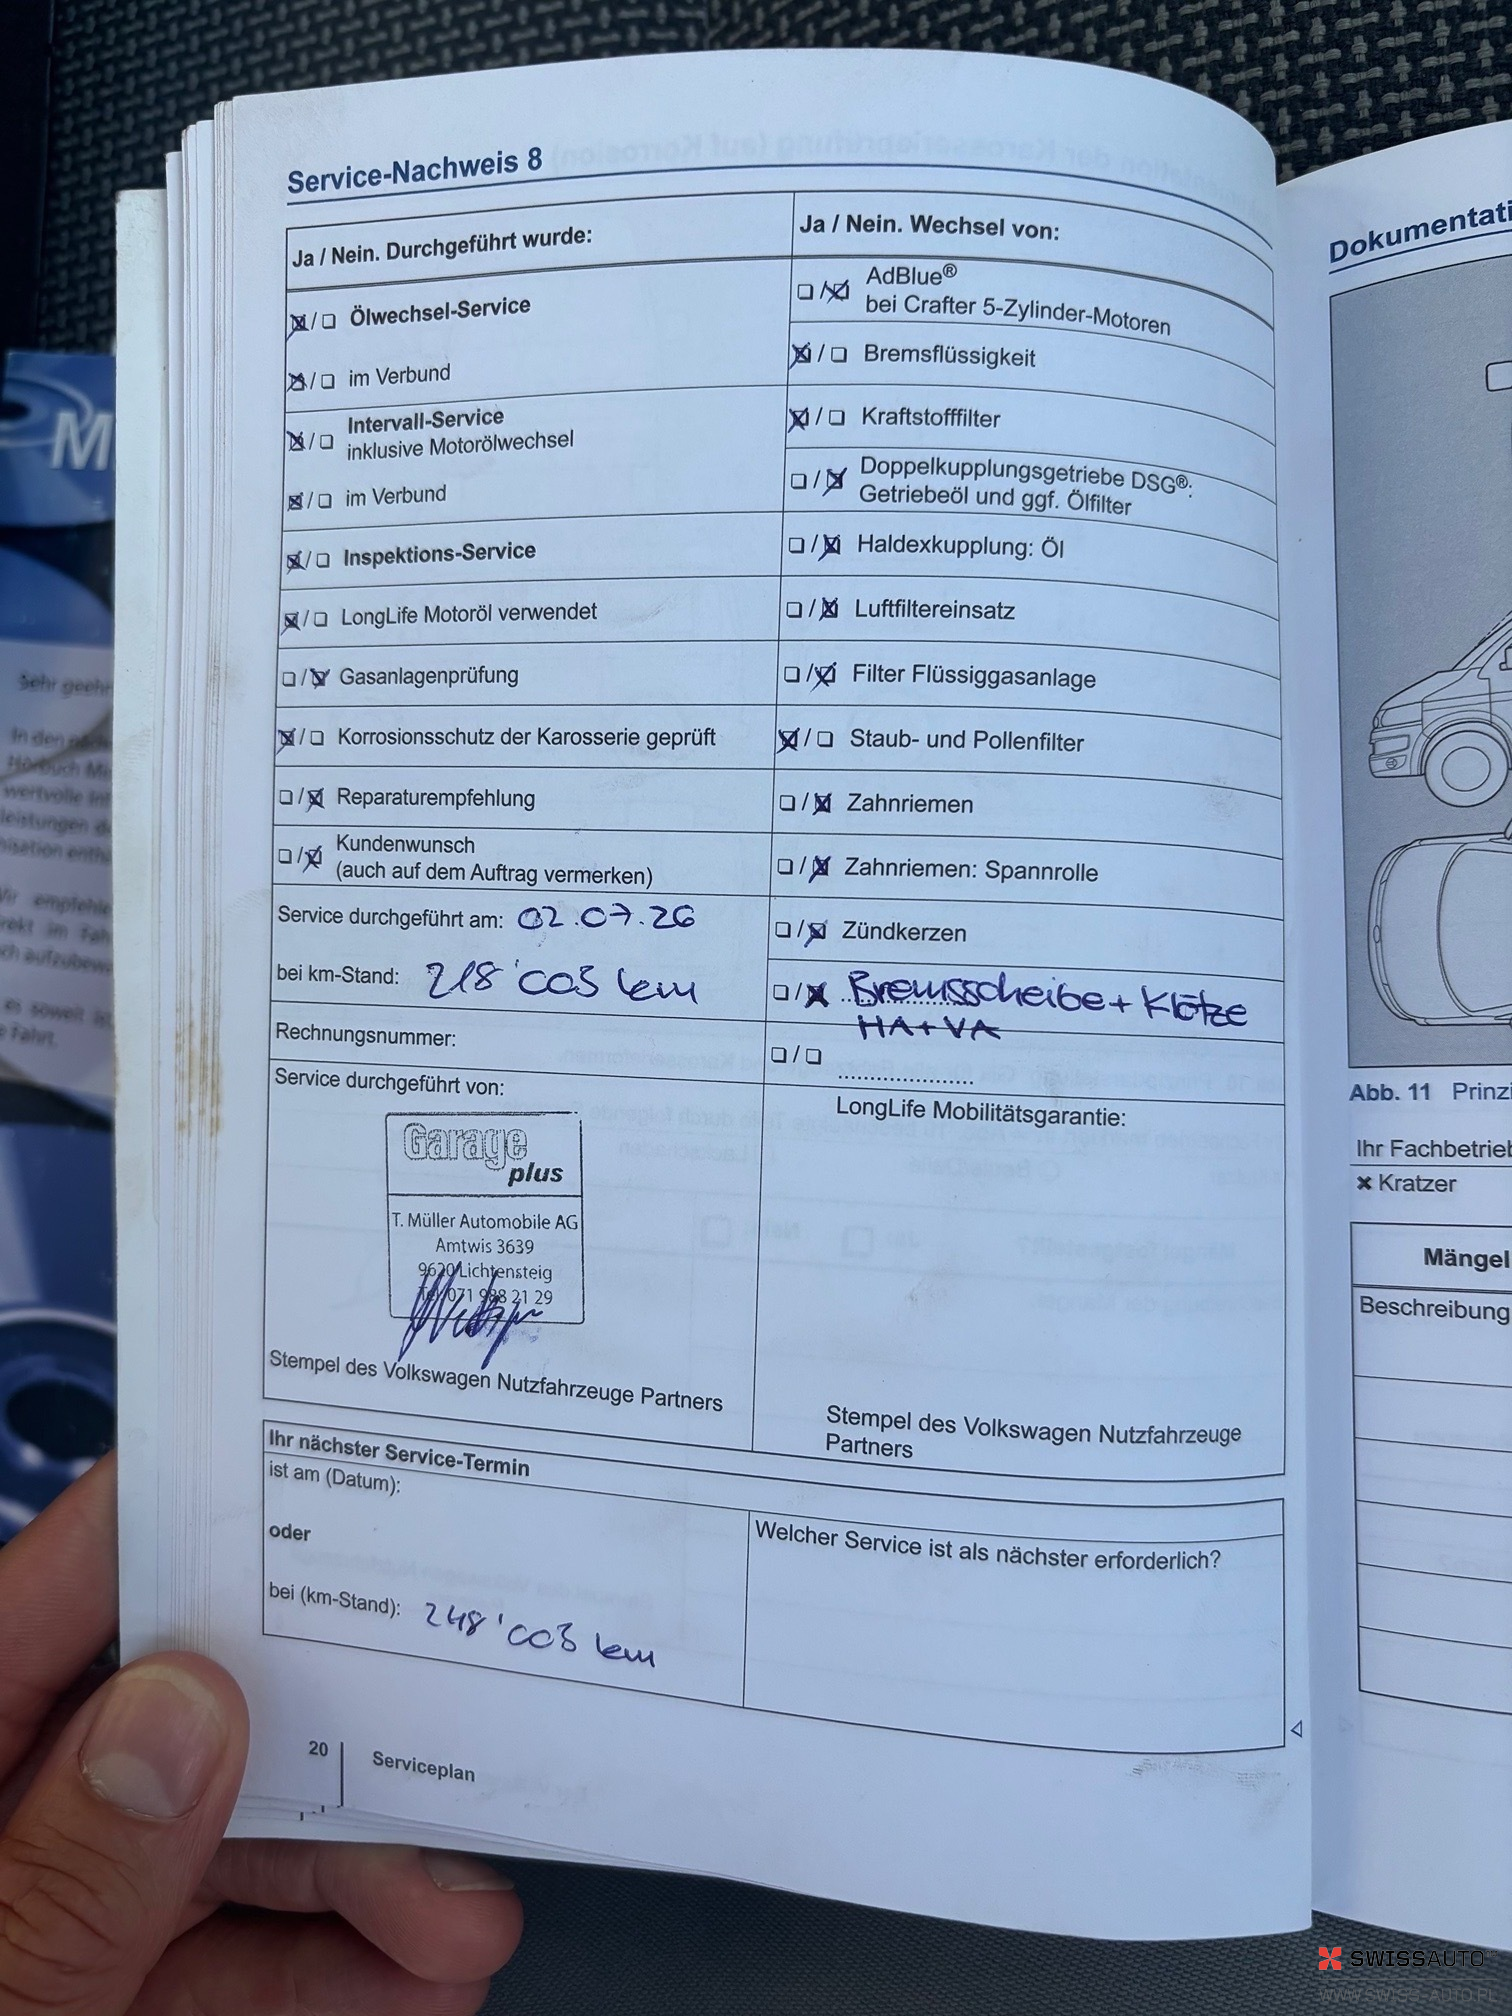 Service-Nachweis 8
Ja / Nein. Durchgeführt wurde:
Ölwechsel-Service
im Verbund
Intervall-Service
inklusive Motorölwechsel
im Verbund
Inspektions-Service
LongLife Motoröl verwendet
Gasanlagenprüfung
Korrosionsschutz der Karosserie geprüft
Reparaturempfehlung
Kundenwunsch
(auch auf dem Auftrag vermerken)
Service durchgeführt am: 02.07.26
bei km-Stand: 218'003 km
Rechnungsnummer:
Service durchgeführt von:
Garage
plus
T. Müller Automobile AG
Amtwis 3639
9620 Lichtensteig
Tel. 071 988 21 29
Stempel des Volkswagen Nutzfahrzeuge Partners
Ja / Nein. Wechsel von:
AdBlue®
bei Crafter 5-Zylinder-Motoren
Bremsflüssigkeit
Kraftstofffilter
Doppelkupplungsgetriebe DSG®:
Getriebeöl und ggf. Ölfilter
Haldexkupplung: Öl
Luftfiltereinsatz
Filter Flüssiggasanlage
Staub- und Pollenfilter
Zahnriemen
Zahnriemen: Spannrolle
Zündkerzen
Bremsscheibe + Klötze
HA + VA
LongLife Mobilitätsgarantie:
Stempel des Volkswagen Nutzfahrzeuge
Partners
Ihr nächster Service-Termin
ist am (Datum):
oder
bei (km-Stand): 248'003 km
Welcher Service ist als nächster erforderlich?
20
Serviceplan
Dokumentati
Abb. 11 Prinzi
Ihr Fachbetrieb
Kratzer
Mängel
Beschreibung
Sehr geehr
SWISSAUTO
WWW.SWISS-AUTO.PL